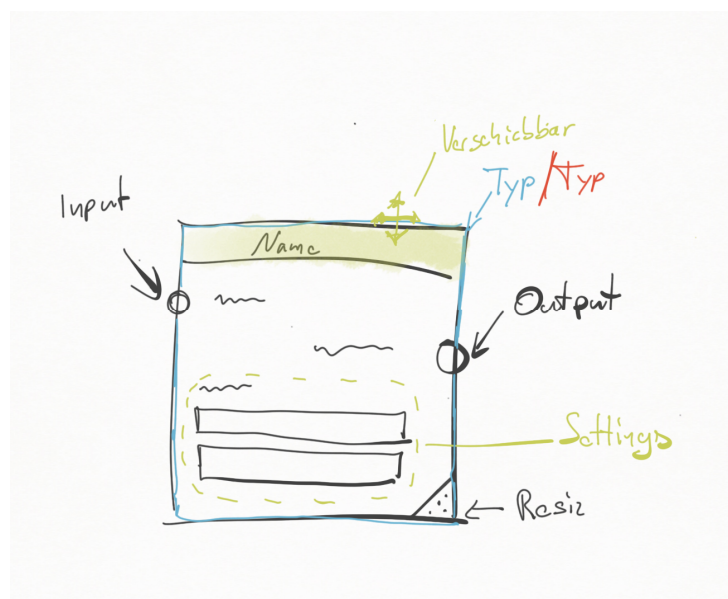 Verschiebbar
Typ/Typ
Input
Name
Output
Settings
Resiz